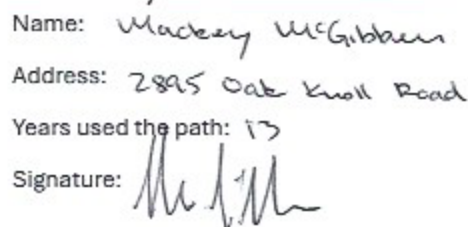 Name: Mackey McGibben
Address: 2895 Oak Knoll Road
Years used the path: 13
Signature: